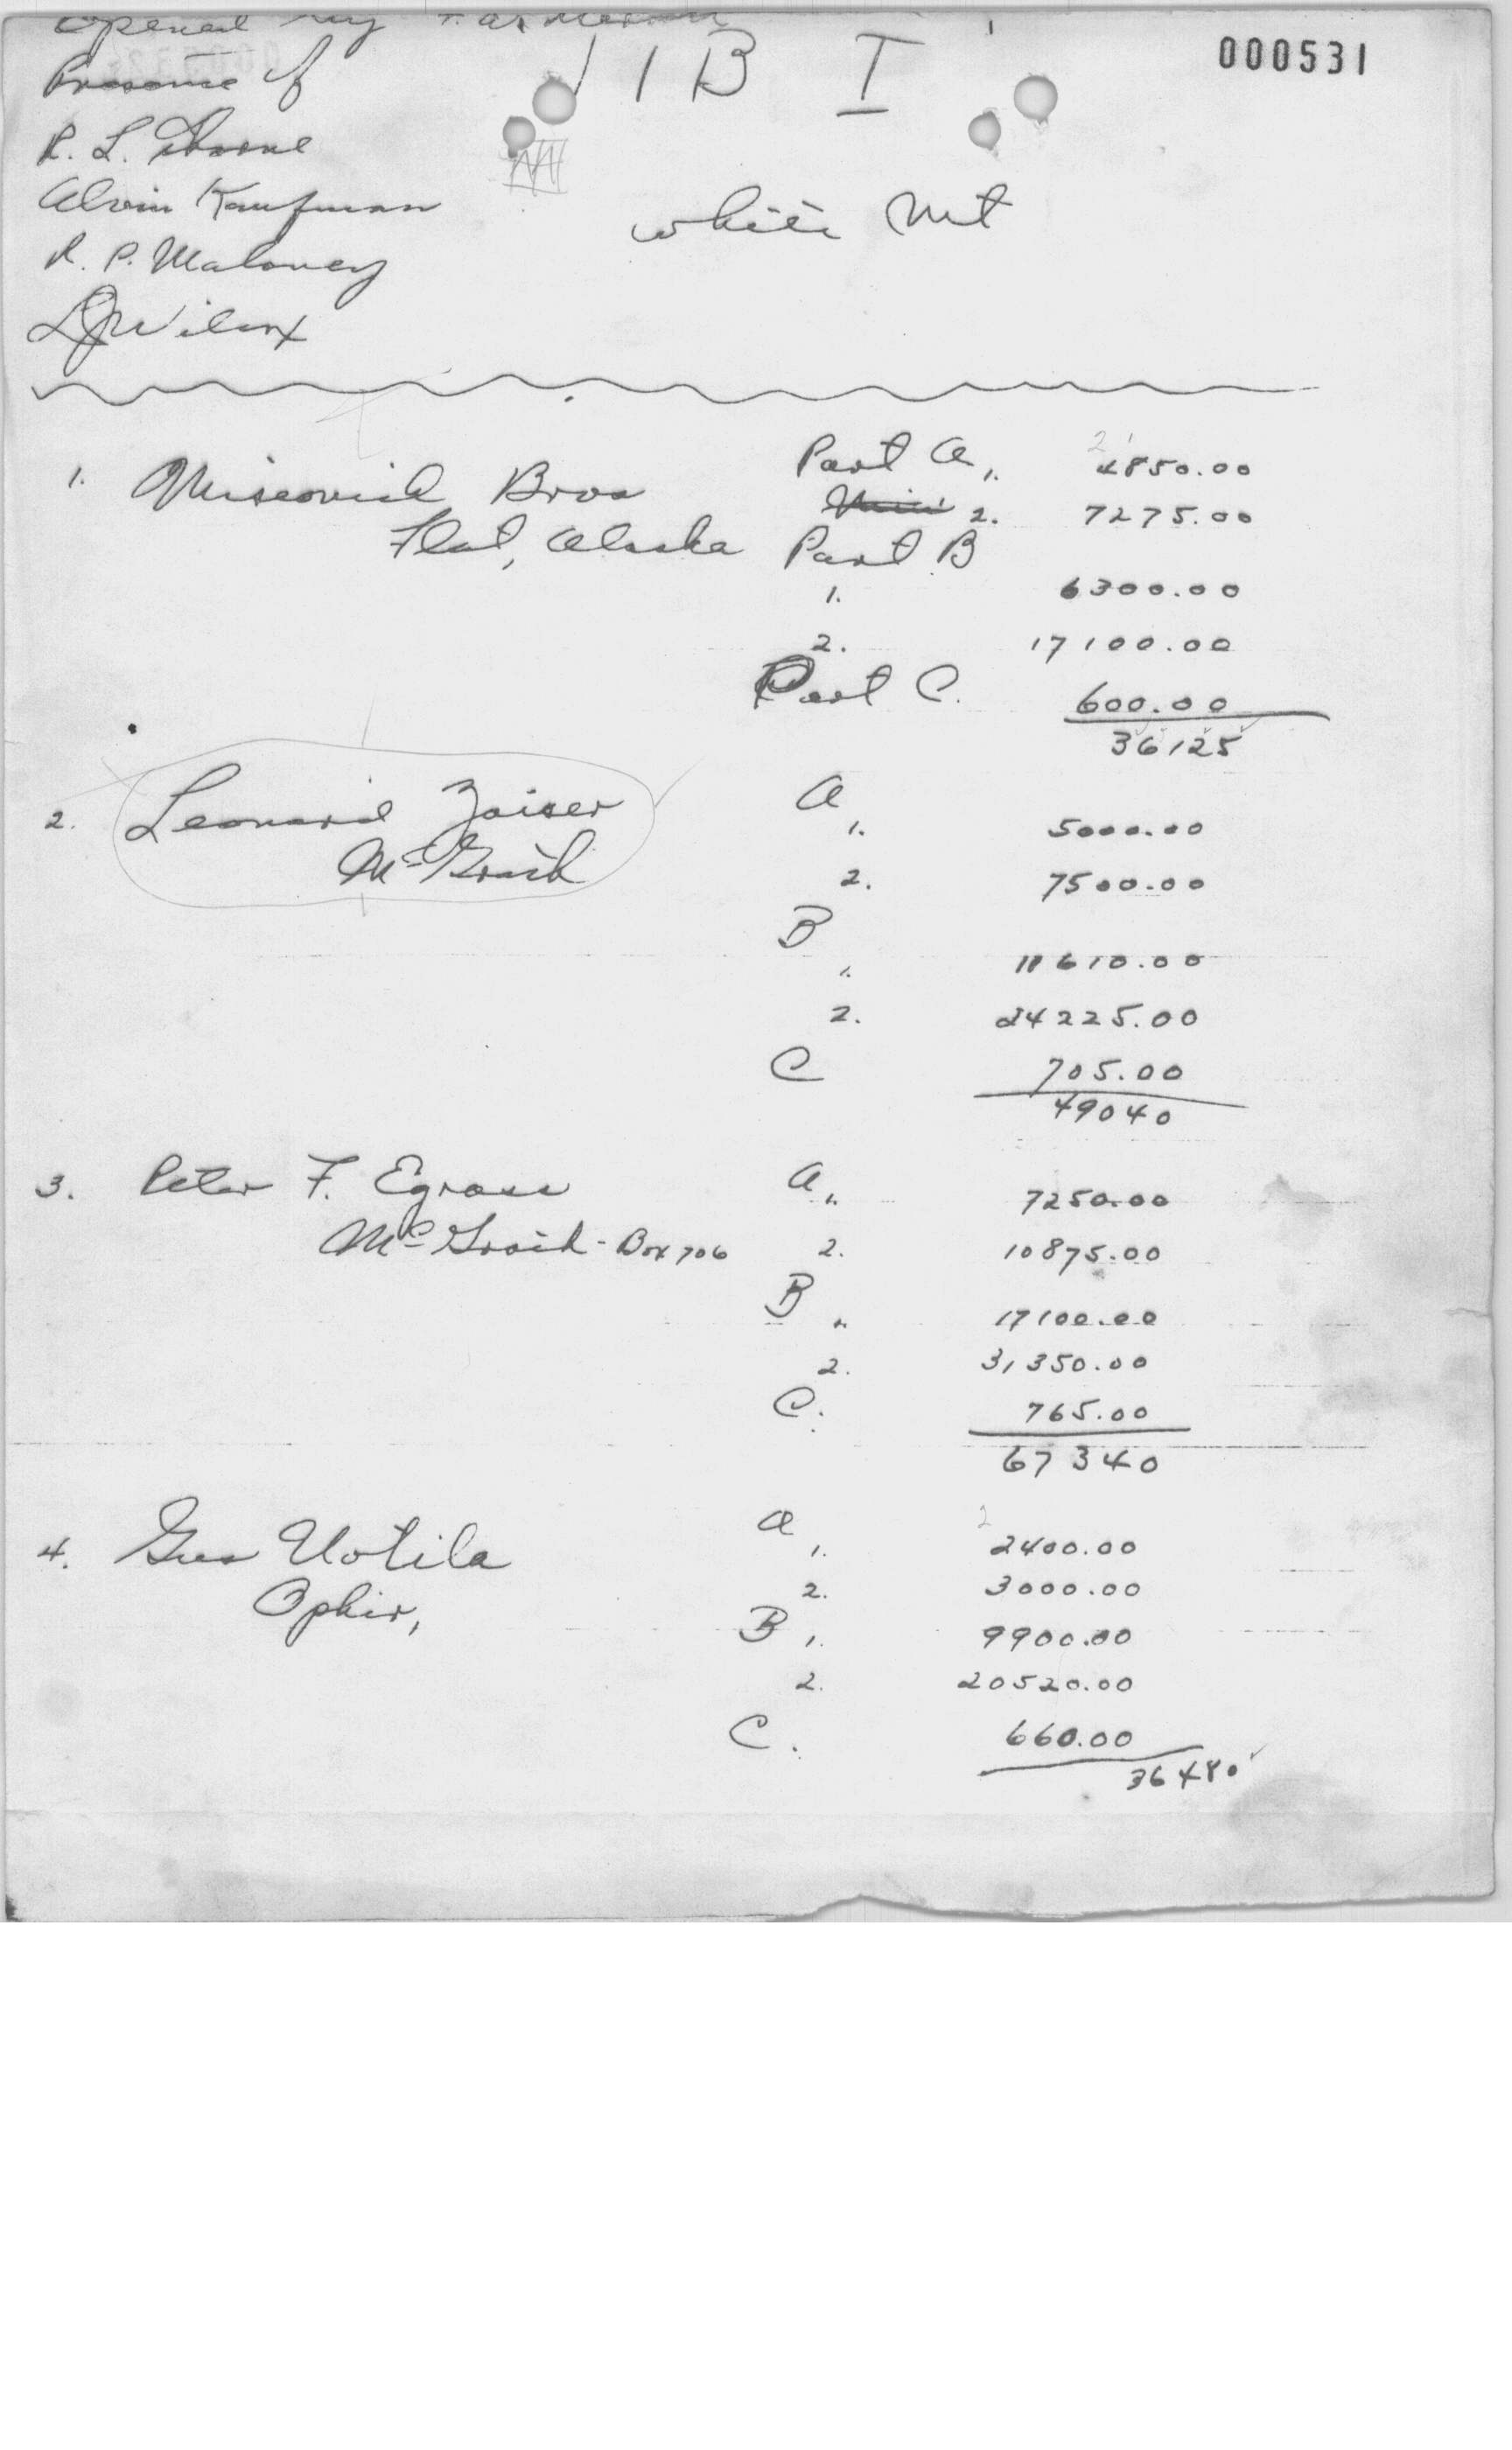 Opened by
Presence of
000531
1 B I
R. L. Thorne
Alvin Kaufman
White Mt
R. P. Maloney
Wilcox
1. Miscovich Bros Part A 1. 4850.00
2. 7275.00
Flat, Alaska Part B
1. 6300.00
2. 17100.00
Part C. 600.00
36125
2. Leonard Zaiser A
1. 5000.00
McGrath
2. 7500.00
B
1. 11610.00
2. 24225.00
C 705.00
49040
3. Peter F. Egrass A 1. 7250.00
McGrath - Box 706 2. 10875.00
B 1. 17100.00
2. 31,350.00
C. 765.00
67340
4. Gus Uotila A
1. 2400.00
Ophir, 2. 3000.00
B 1. 9900.00
2. 20520.00
C. 660.00
36480